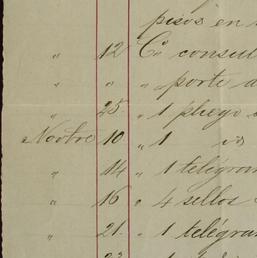 pisos en
" 12 " Cª consul
" " " porte a
" 25 " 1 pliego
Novbre 10 " 1 id
" 14 " 1 telégram
" 16 " 4 sellos
" 21 " 1 telégram